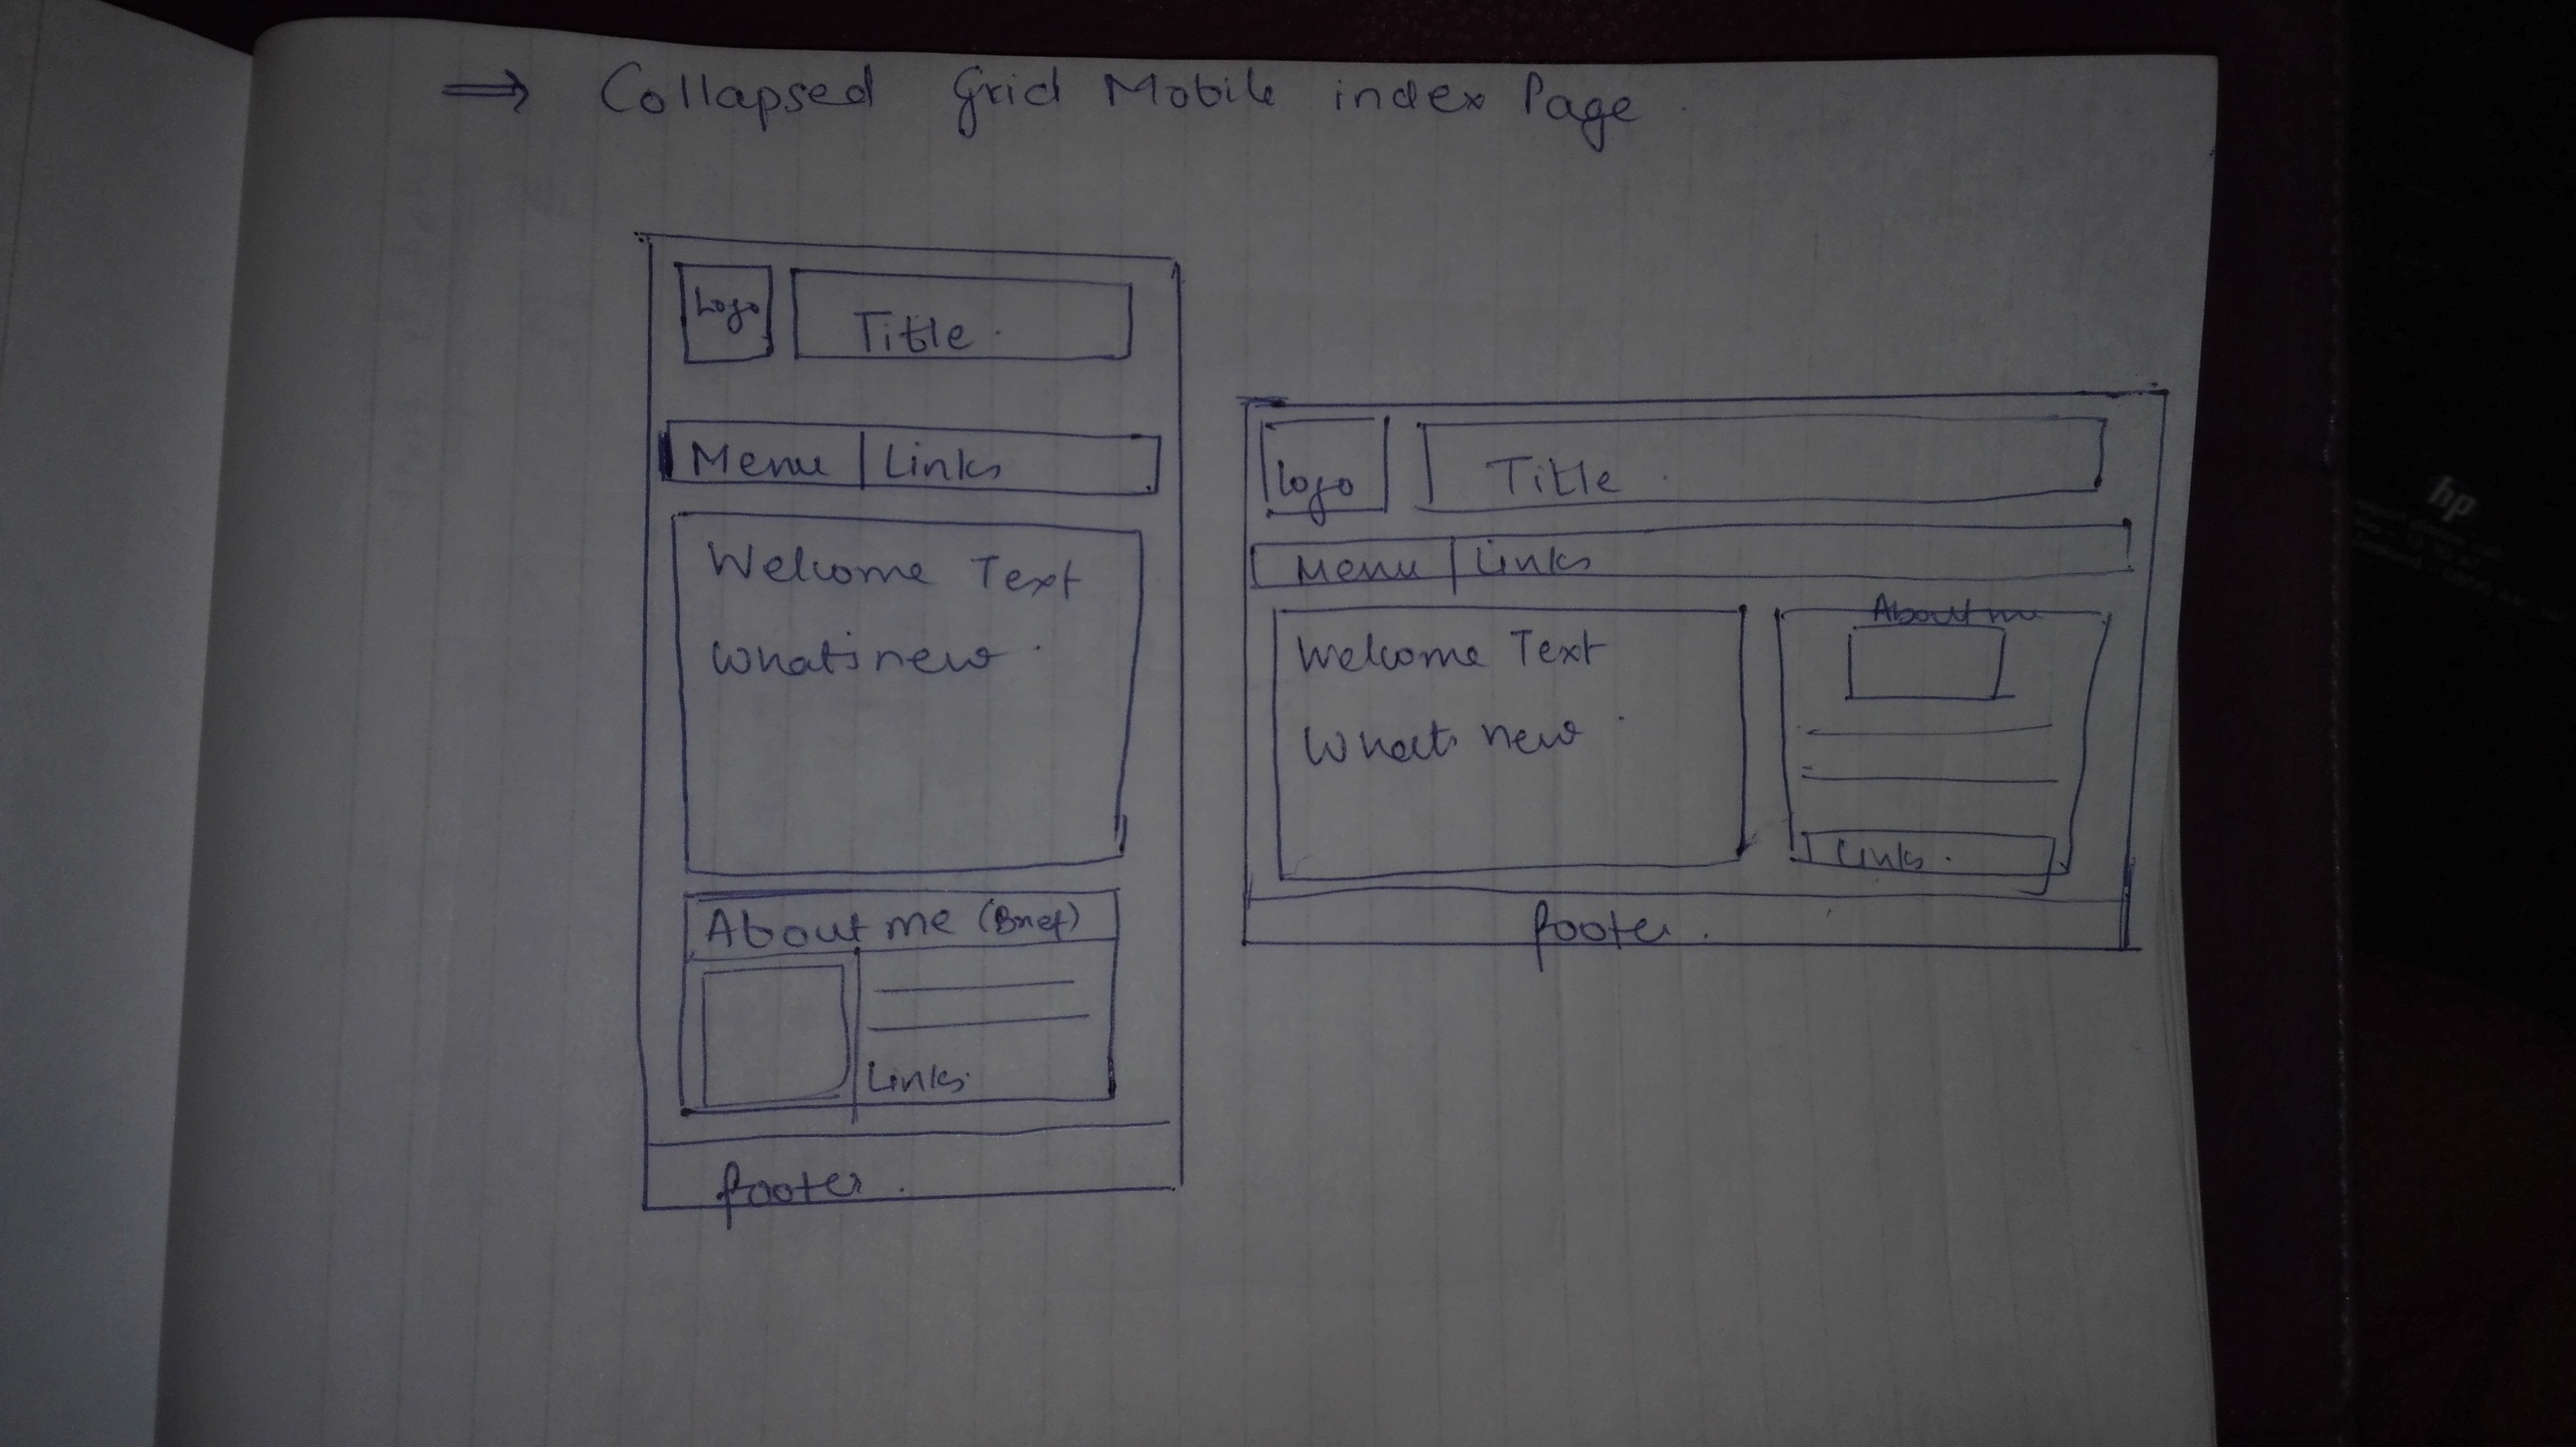 ⇒ Collapsed Grid Mobile index Page.
Logo
Title.
Menu | Links
Welcome Text
What's new.
About me (Brief)
Links.
footer.
Logo
Title.
Menu | Links
Welcome Text
What's new.
About me
Links.
footer.
hp